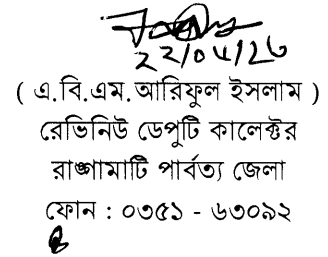 22/04/26
( এ.বি.এম.আরিফুল ইসলাম )
রেভিনিউ ডেপুটি কালেক্টর
রাঙ্গামাটি পার্বত্য জেলা
ফোন : ০৩৫১ - ৬৩০৯২